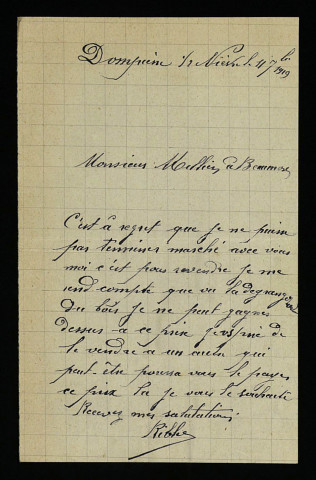 Dompierre s/ Nièvre le 4 7bre
1919
Monsieur Mullier à Beaumont
C'est à regret que je ne puisse
pas terminer marché avec vous
moi c'est pour revendre je me
rend compte que vu la
du bois je ne peut gagner
dessus a ce prix je vous prie de
le vendre a un autre qui
peut-être pourra vous le payer
ce prix la je vous le souhaite
Recevez mes salutations